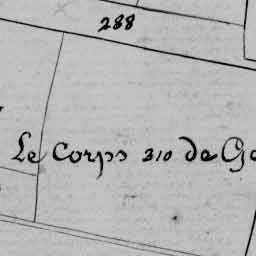 288
Le Corps 310 de Ge